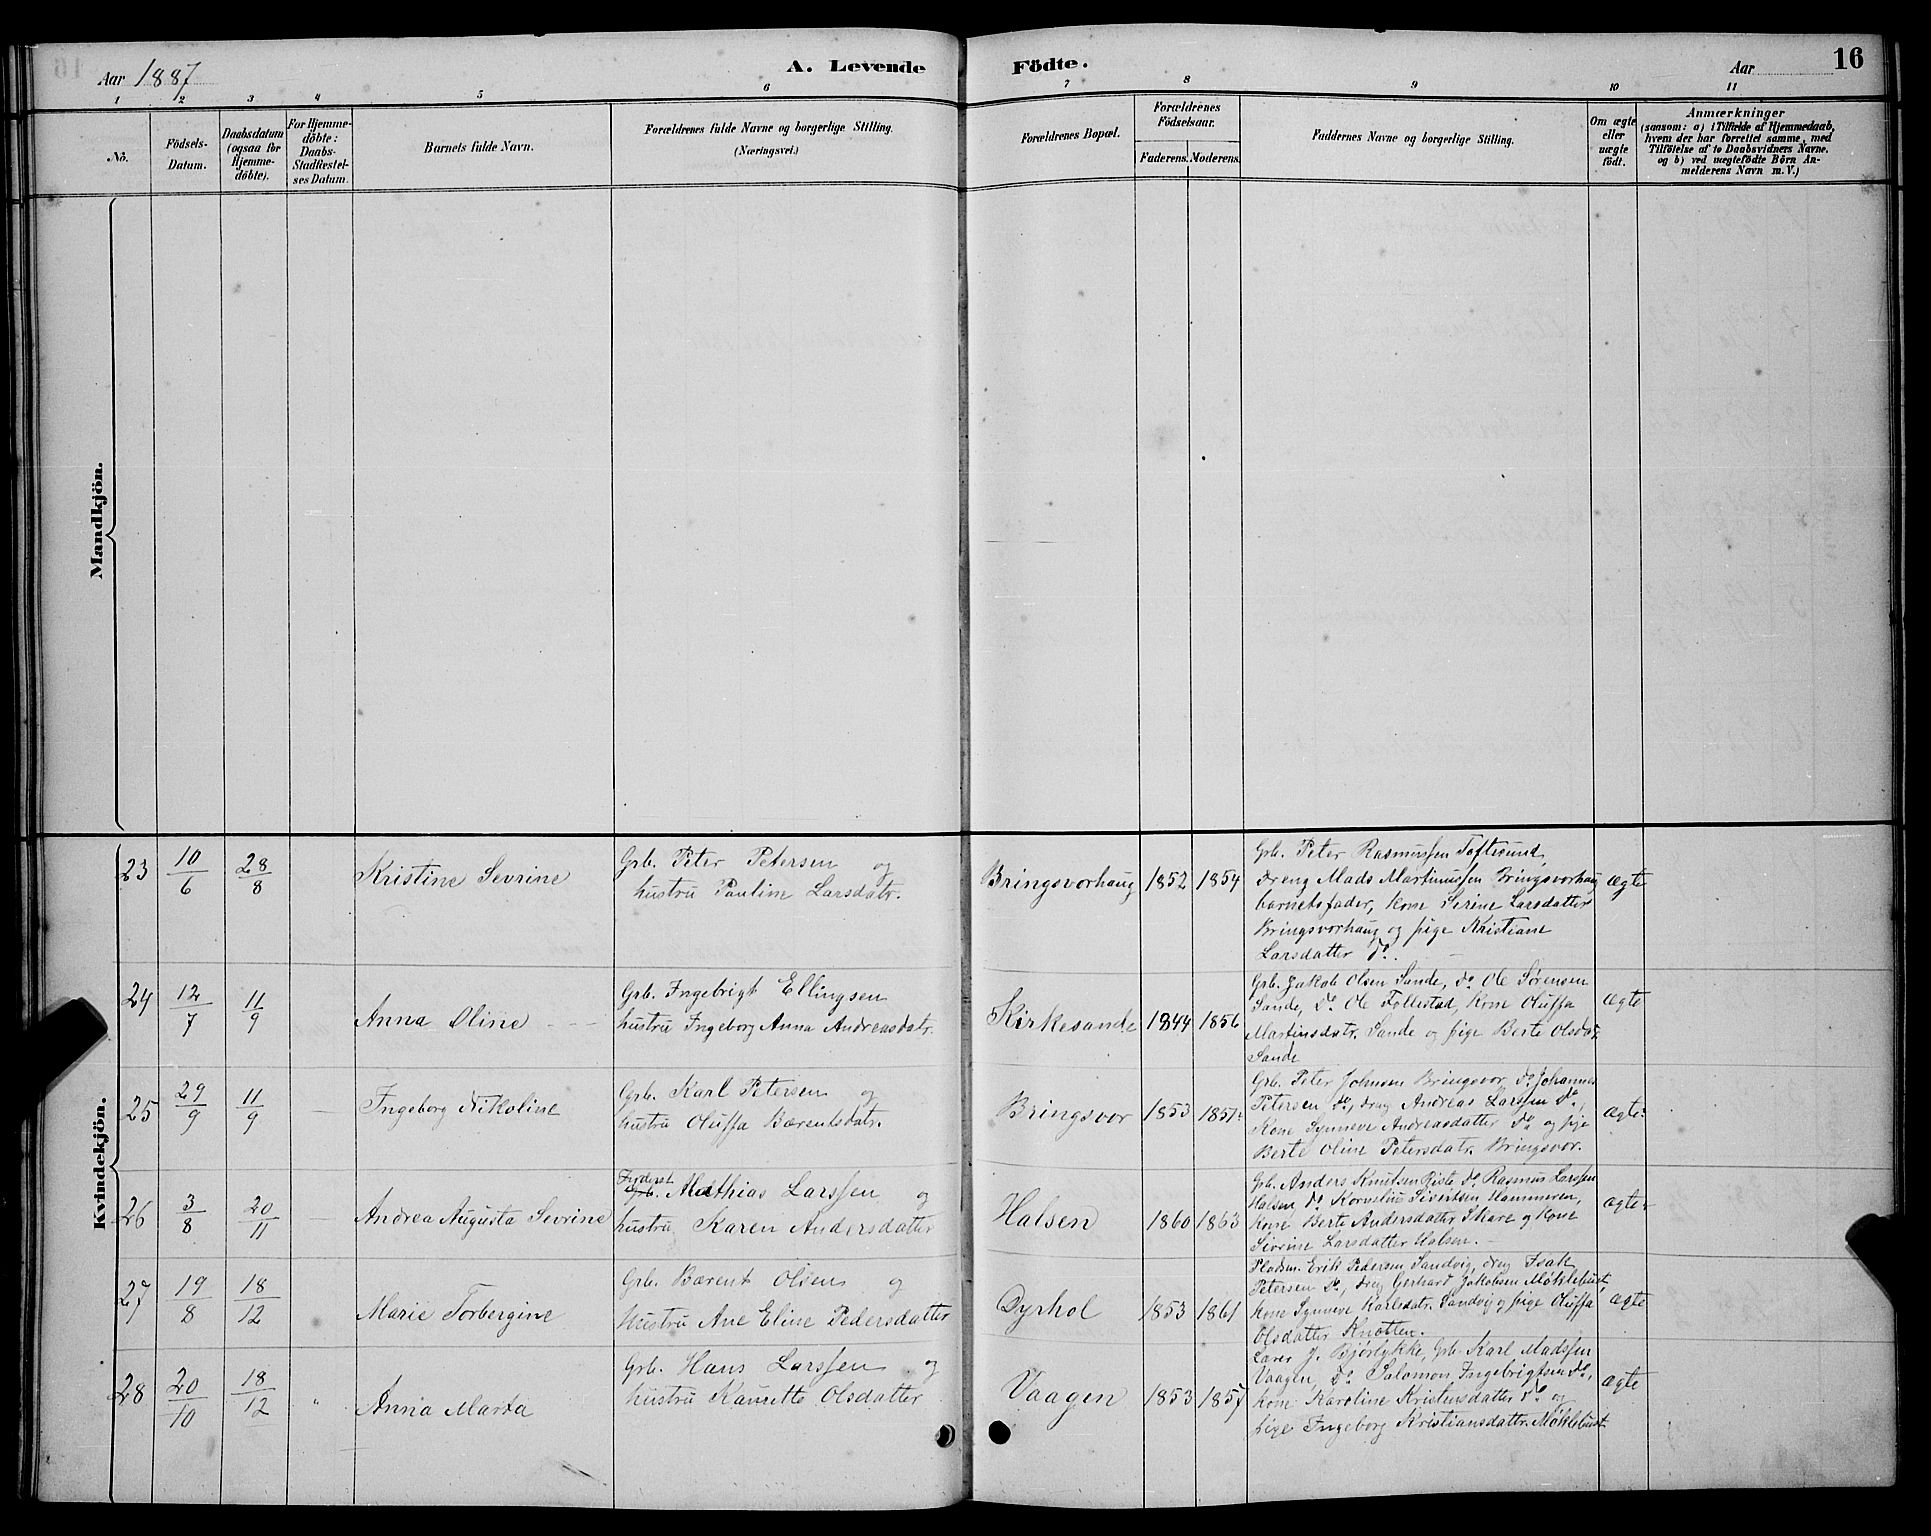 Aar 1887
A. Levende Födte.
Aar
16
1
2
3
4
5
6
7
8
9
10
11
No.
Födsels-
Datum.
Daabsdatum
(ogsaa for
Hjemme-
döbte).
For Hjemme-
döbte:
Daabs-
Stadfæstel-
ses Datum.
Barnets fulde Navn.
Forældrenes fulde Navne og borgerlige Stilling.
(Næringsvei.)
Forældrenes Bopæl.
Forældrenes
Födselsaar.
Faderens.
Moderens.
Faddernes Navne og borgerlige Stilling.
Om ægte
eller
uægte
födt.
Anmærkninger
(saasom: a) i Tilfælde af Hjemmedaab,
hvem der har forrettet samme, med
Tilföielse af to Daabsvidners Navne.
og b) ved uægtefödte Börn An-
melderens Navn m. V.)
Mandkjön.
Kvindekjön.
23
10/6
28/8
Kristine Sevrine
Grb. Peter Petersen og
hustru Pauline Larsdatr.
Bringsvorhaug
1852
1854
Grb. Peter Rasmussen Toftesund,
dreng Mads Martinussen Bringsvorhaug
barnets fader, kone Serine Larsdatter
Bringsvorhaug og pige Kristiane
Larsdatter do.
ægte
24
12/7
11/9
Anna Oline
Grb. Ingebrigt Ellingsen
hustru Ingeborg Anna Andreasdatr.
Kirkesande
1844
1856
Grb. Jakob Olsen Sande, do. Ole Sørensen
Sande, do. Ole Follestad, kone Oluffa
Martinsdatr. Sande og pige Berte Olsdatr.
Sande
ægte
25
29/9
11/9
Ingeborg Nikoline
Grb. Karl Petersen og
hustru Oluffa Bærentsdatr.
Bringsvor
1853
1851
Grb. Peter Johnsen Bringsvor, do. Johannes
Petersen do., drng Andreas Larssen do.,
kone Synneve Andreasdatter do. og pige
Berte Oline Petersdatr. Bringsvor.
ægte
26
3/8
20/11
Andrea Augusta Sevrine
Grb. Mathias Larssen og
hustru Karen Andersdatter
Halsen
1860
1863
Grb. Anders Knutsen Riste do. Rasmus Larssen
Halsen, do. Kornelius Sivertsen Hammeren,
kone Berte Andersdatter Skare og kone
Sivrine Larsdatter Halsen.
ægte
27
19/8
18/12
Marie Torbergine
Grb. Bærent Olsen og
hustru Ane Eline Pedersdatter
Dyrhol
1853
1861
Pladsm. Erik Pedersen Sandvig, drng Isak
Petersen do., drng Gerhard Jakobsen Møklebust,
kone Synneve Karlsdatr. Sandvig og pige Oluffa
Olsdatter Knotten.
ægte
28
20/10
18/12
Anna Marta
Grb. Hans Larssen og
hustru Olsdatter
Vaagen
1853
1857
Lærer J. Bjørlykke, Grb. Karl Madssen
Vaagen, do. Salomon Ingebrigtsen do.,
kone Karoline Kristensdatter do. og
pige Ingeborg Kristiansdattr. Møklebust
ægte